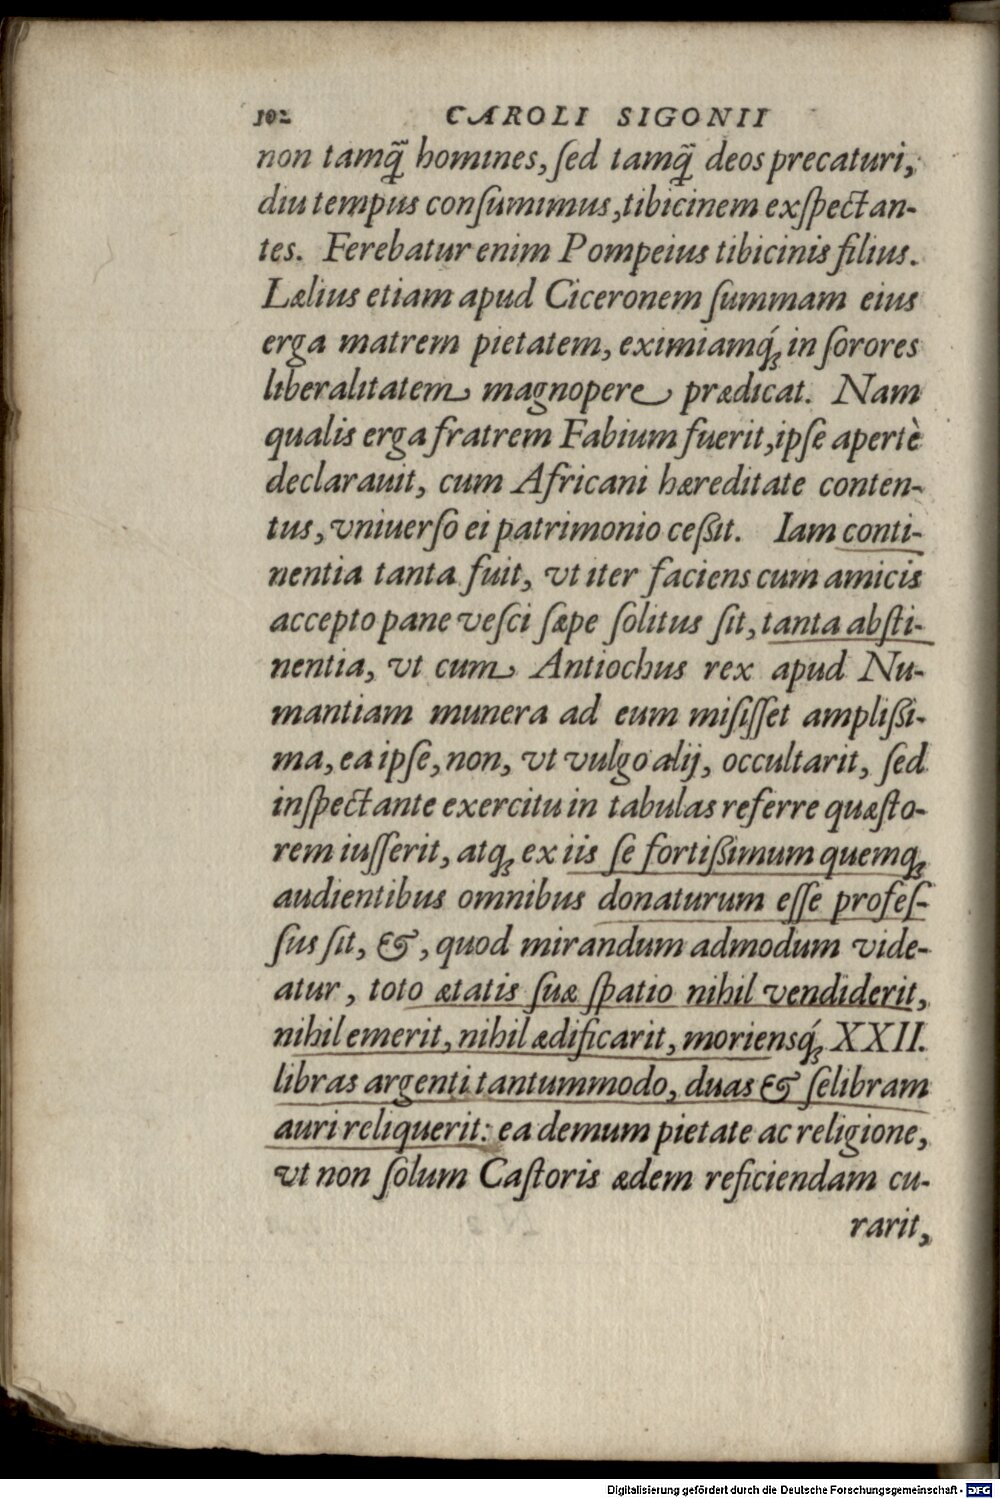 102 CAROLI SIGONII
non tamq̃ homines, ſed tamq̃ deos precaturi,
diu tempus conſumimus, tibicinem exſpectan-
tes. Ferebatur enim Pompeius tibicinis filius.
Lælius etiam apud Ciceronem ſummam eius
erga matrem pietatem, eximiamq́ꝫ in ſorores
liberalitatem magnopere prædicat. Nam
qualis erga fratrem Fabium fuerit, ipſe apertè
declarauit, cum Africani hæreditate conten-
tus, vniuerſo ei patrimonio ceßit. Iam conti-
nentia tanta fuit, vt iter faciens cum amicis
accepto pane veſci ſæpe ſolitus ſit, tanta abſti-
nentia, vt cum Antiochus rex apud Nu-
mantiam munera ad eum miſiſſet amplißi-
ma, ea ipſe, non, vt vulgo alij, occultarit, ſed
inſpectante exercitu in tabulas referre quæſto-
rem iuſſerit, atqꝫ ex iis ſe fortißimum quemqꝫ
audientibus omnibus donaturum eſſe profeſ-
ſus ſit, &, quod mirandum admodum vide-
atur, toto ætatis ſuæ ſpatio nihil vendiderit,
nihil emerit, nihil ædificarit, moriensq́ꝫ XXII.
libras argenti tantummodo, duas & ſelibram
auri reliquerit: ea demum pietate ac religione,
vt non ſolum Caſtoris ædem reficiendam cu-
rarit,
Digitalisierung gefördert durch die Deutsche Forschungsgemeinschaft - DFG